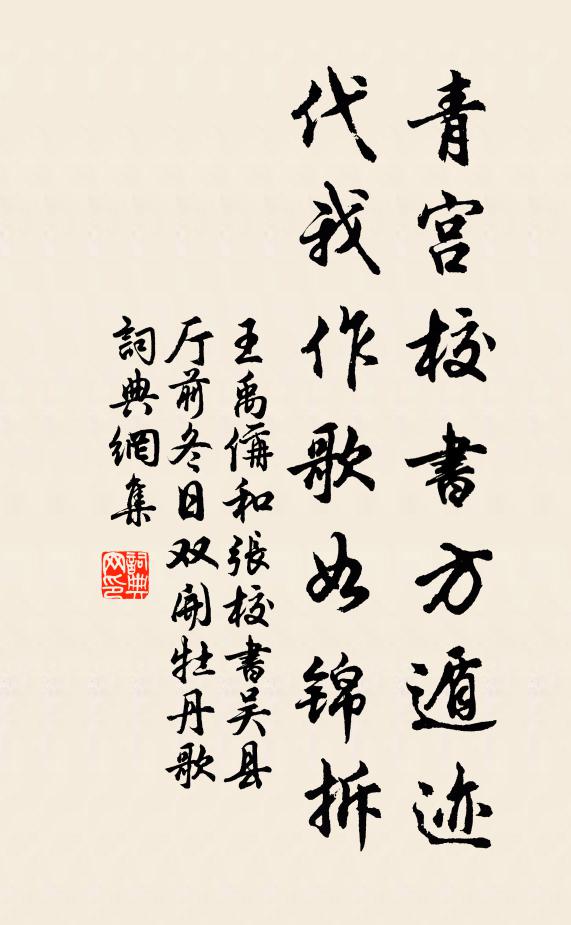 青宫校書方遁迹
代我作歌如錦拆
王禹偁和張校書吴县
厅前冬日双開牡丹歌
詞典網集
詞典网印